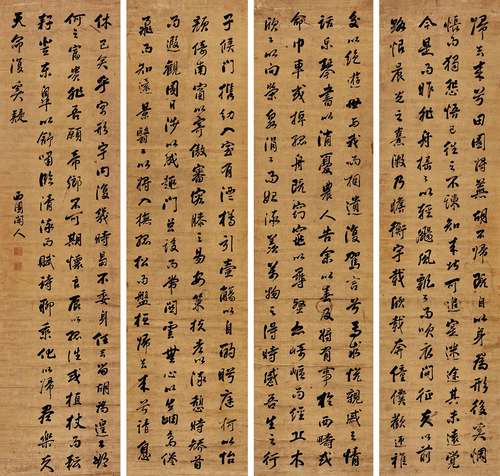 歸去來兮田園將蕪胡不歸既自以心爲形役奚惆
悵而獨悲悟已往之不諫知來者可追實迷途其未遠覺
今是而昨非舟搖搖以輕颺風飄飄而吹衣問征夫以前
路恨晨光之熹微乃瞻衡宇載欣載奔僮僕歡迎稚
子候門攜幼入室有酒盈樽引壺觴以自酌眄庭柯以怡
顏倚南窗以寄傲審容膝之易安策扶老以流憩時矯首
而遐觀園日涉以成趣門雖設而常關雲無心以出岫鳥倦
飛而知還景翳翳以將入撫孤松而盤桓歸去來兮請息
交以絕遊世與我而相遺復駕言兮焉求悅親戚之情
話樂琴書以消憂農人告余以春及將有事於西疇或
命巾車或棹孤舟既窈窕以尋壑亦崎嶇而經丘木
欣欣以向榮泉涓涓而始流羨萬物之得時感吾生之行
休已矣乎寓形宇內復幾時曷不委身任去留胡爲遑遑欲
何之富貴非吾願帝鄉不可期懷良辰以孤往或植杖而耘
耔登東皋以舒嘯臨清流而賦詩聊乘化以歸盡樂夫
天命復奚疑
西園閒人